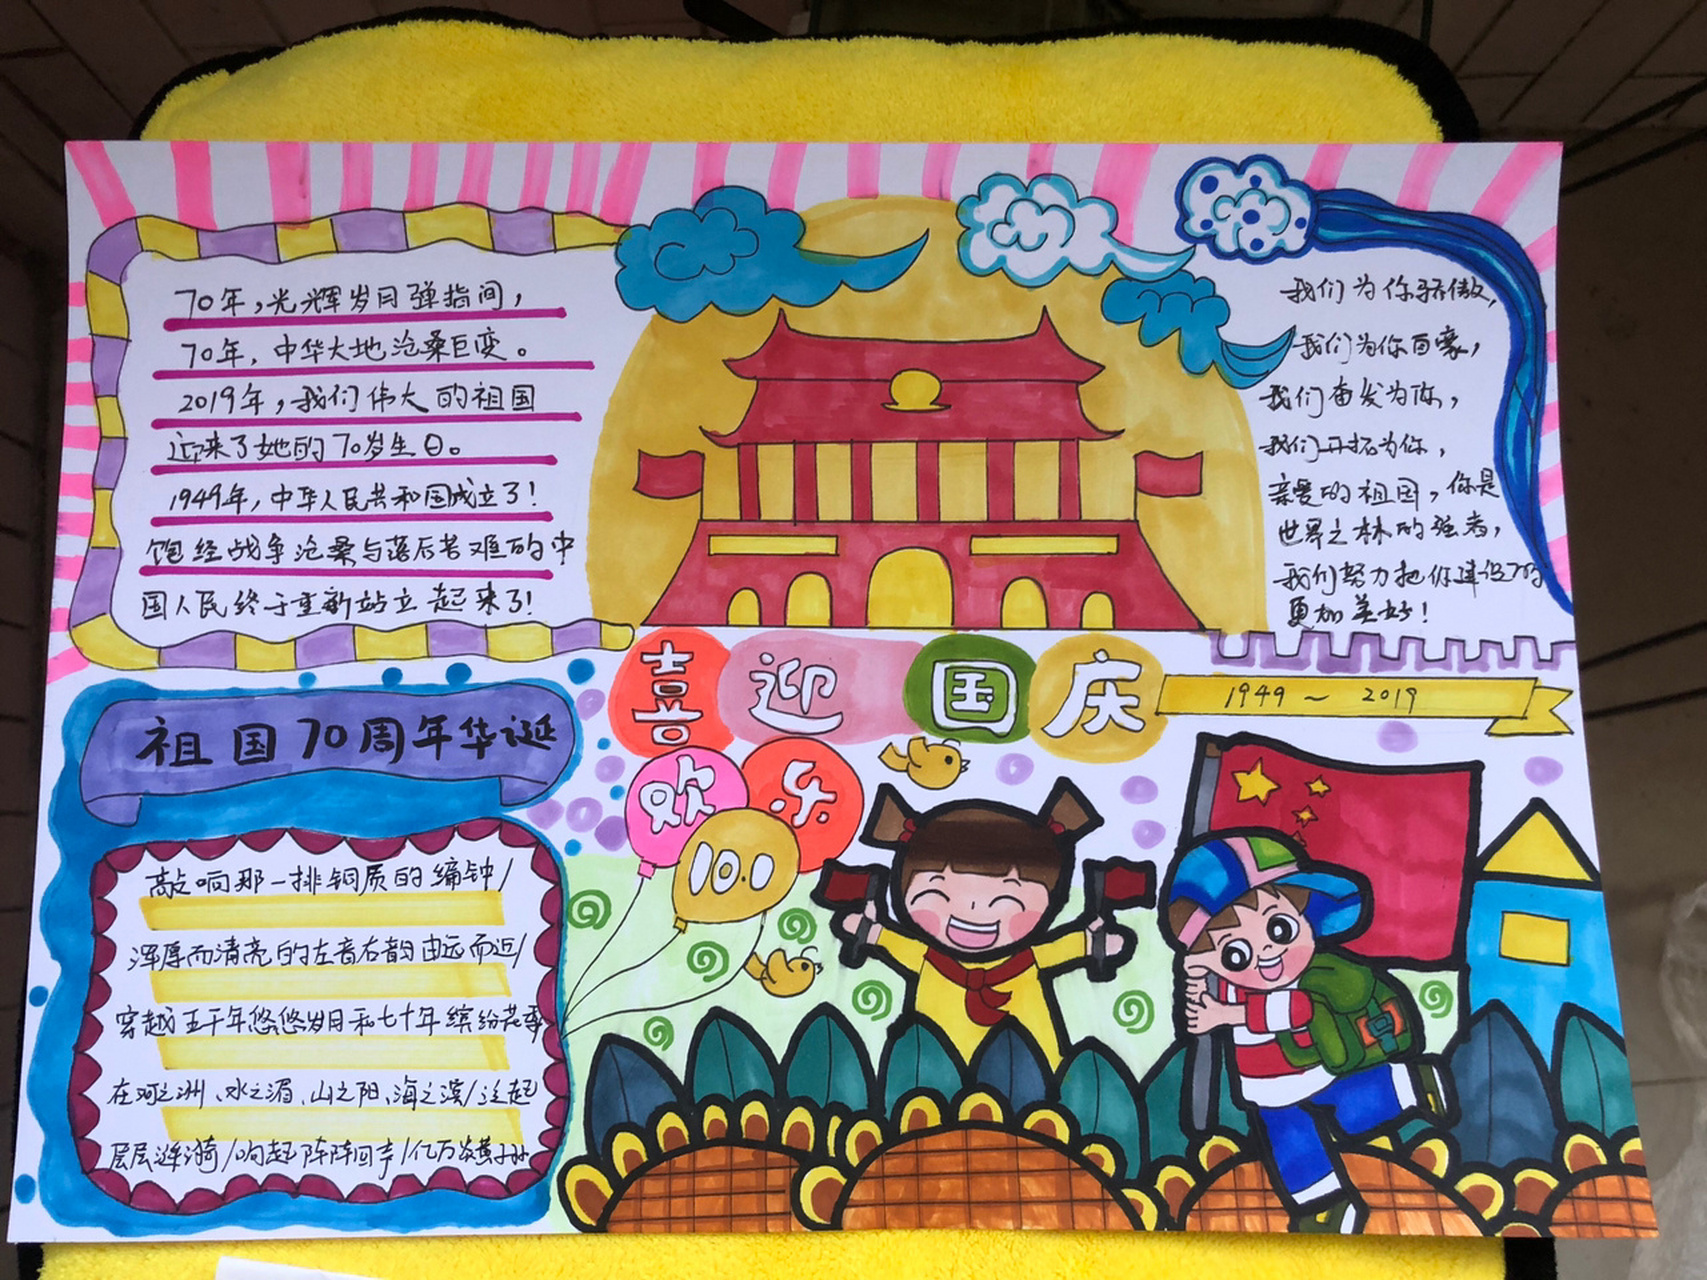 70年,光辉岁月弹指间,
70年,中华大地沧桑巨变。
2019年,我们伟大的祖国
迎来了她的70岁生日。
1949年,中华人民共和国成立了!
饱经战争沧桑与落后苦难的中
国人民终于重新站立起来了!
我们为你骄傲,
我们为你自豪,
我们奋发为你,
我们开拓为你,
亲爱的祖国,你是
世界之林的强者,
我们努力把你建设的
更加美好!
喜迎国庆
1949~2019
欢乐
10.1
祖国70周年华诞
敲响那一排铜质的编钟/
浑厚而清亮的左音右韵由远而近/
穿越五千年悠悠岁月和七十年缤纷花季
在河之洲、水之湄、山之阳、海之滨/泛起
层层涟漪/响起阵阵回声/亿万炎黄子孙